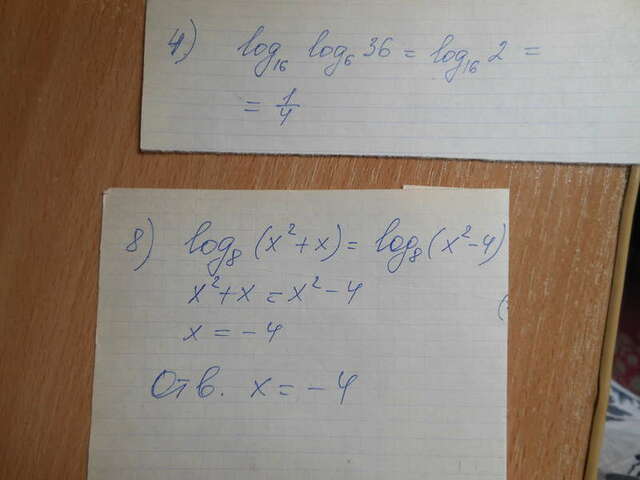 4) log₁₆ log₆ 36 = log₁₆ 2 =
= 1/4
8) log₈ (x² + x) = log₈ (x² - 4)
x² + x = x² - 4
x = - 4
Отв. x = - 4